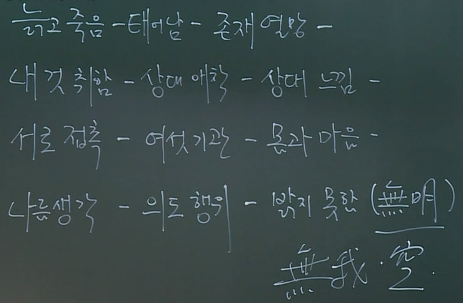 늙고 죽음 - 태어남 - 존재 열망 -
내 것 취함 - 상대 애착 - 상대 느낌 -
서로 접촉 - 여섯 기관 - 몸과 마음 -
나름 생각 - 의도 행위 - 밝지 못한 (無明)
無我 · 空